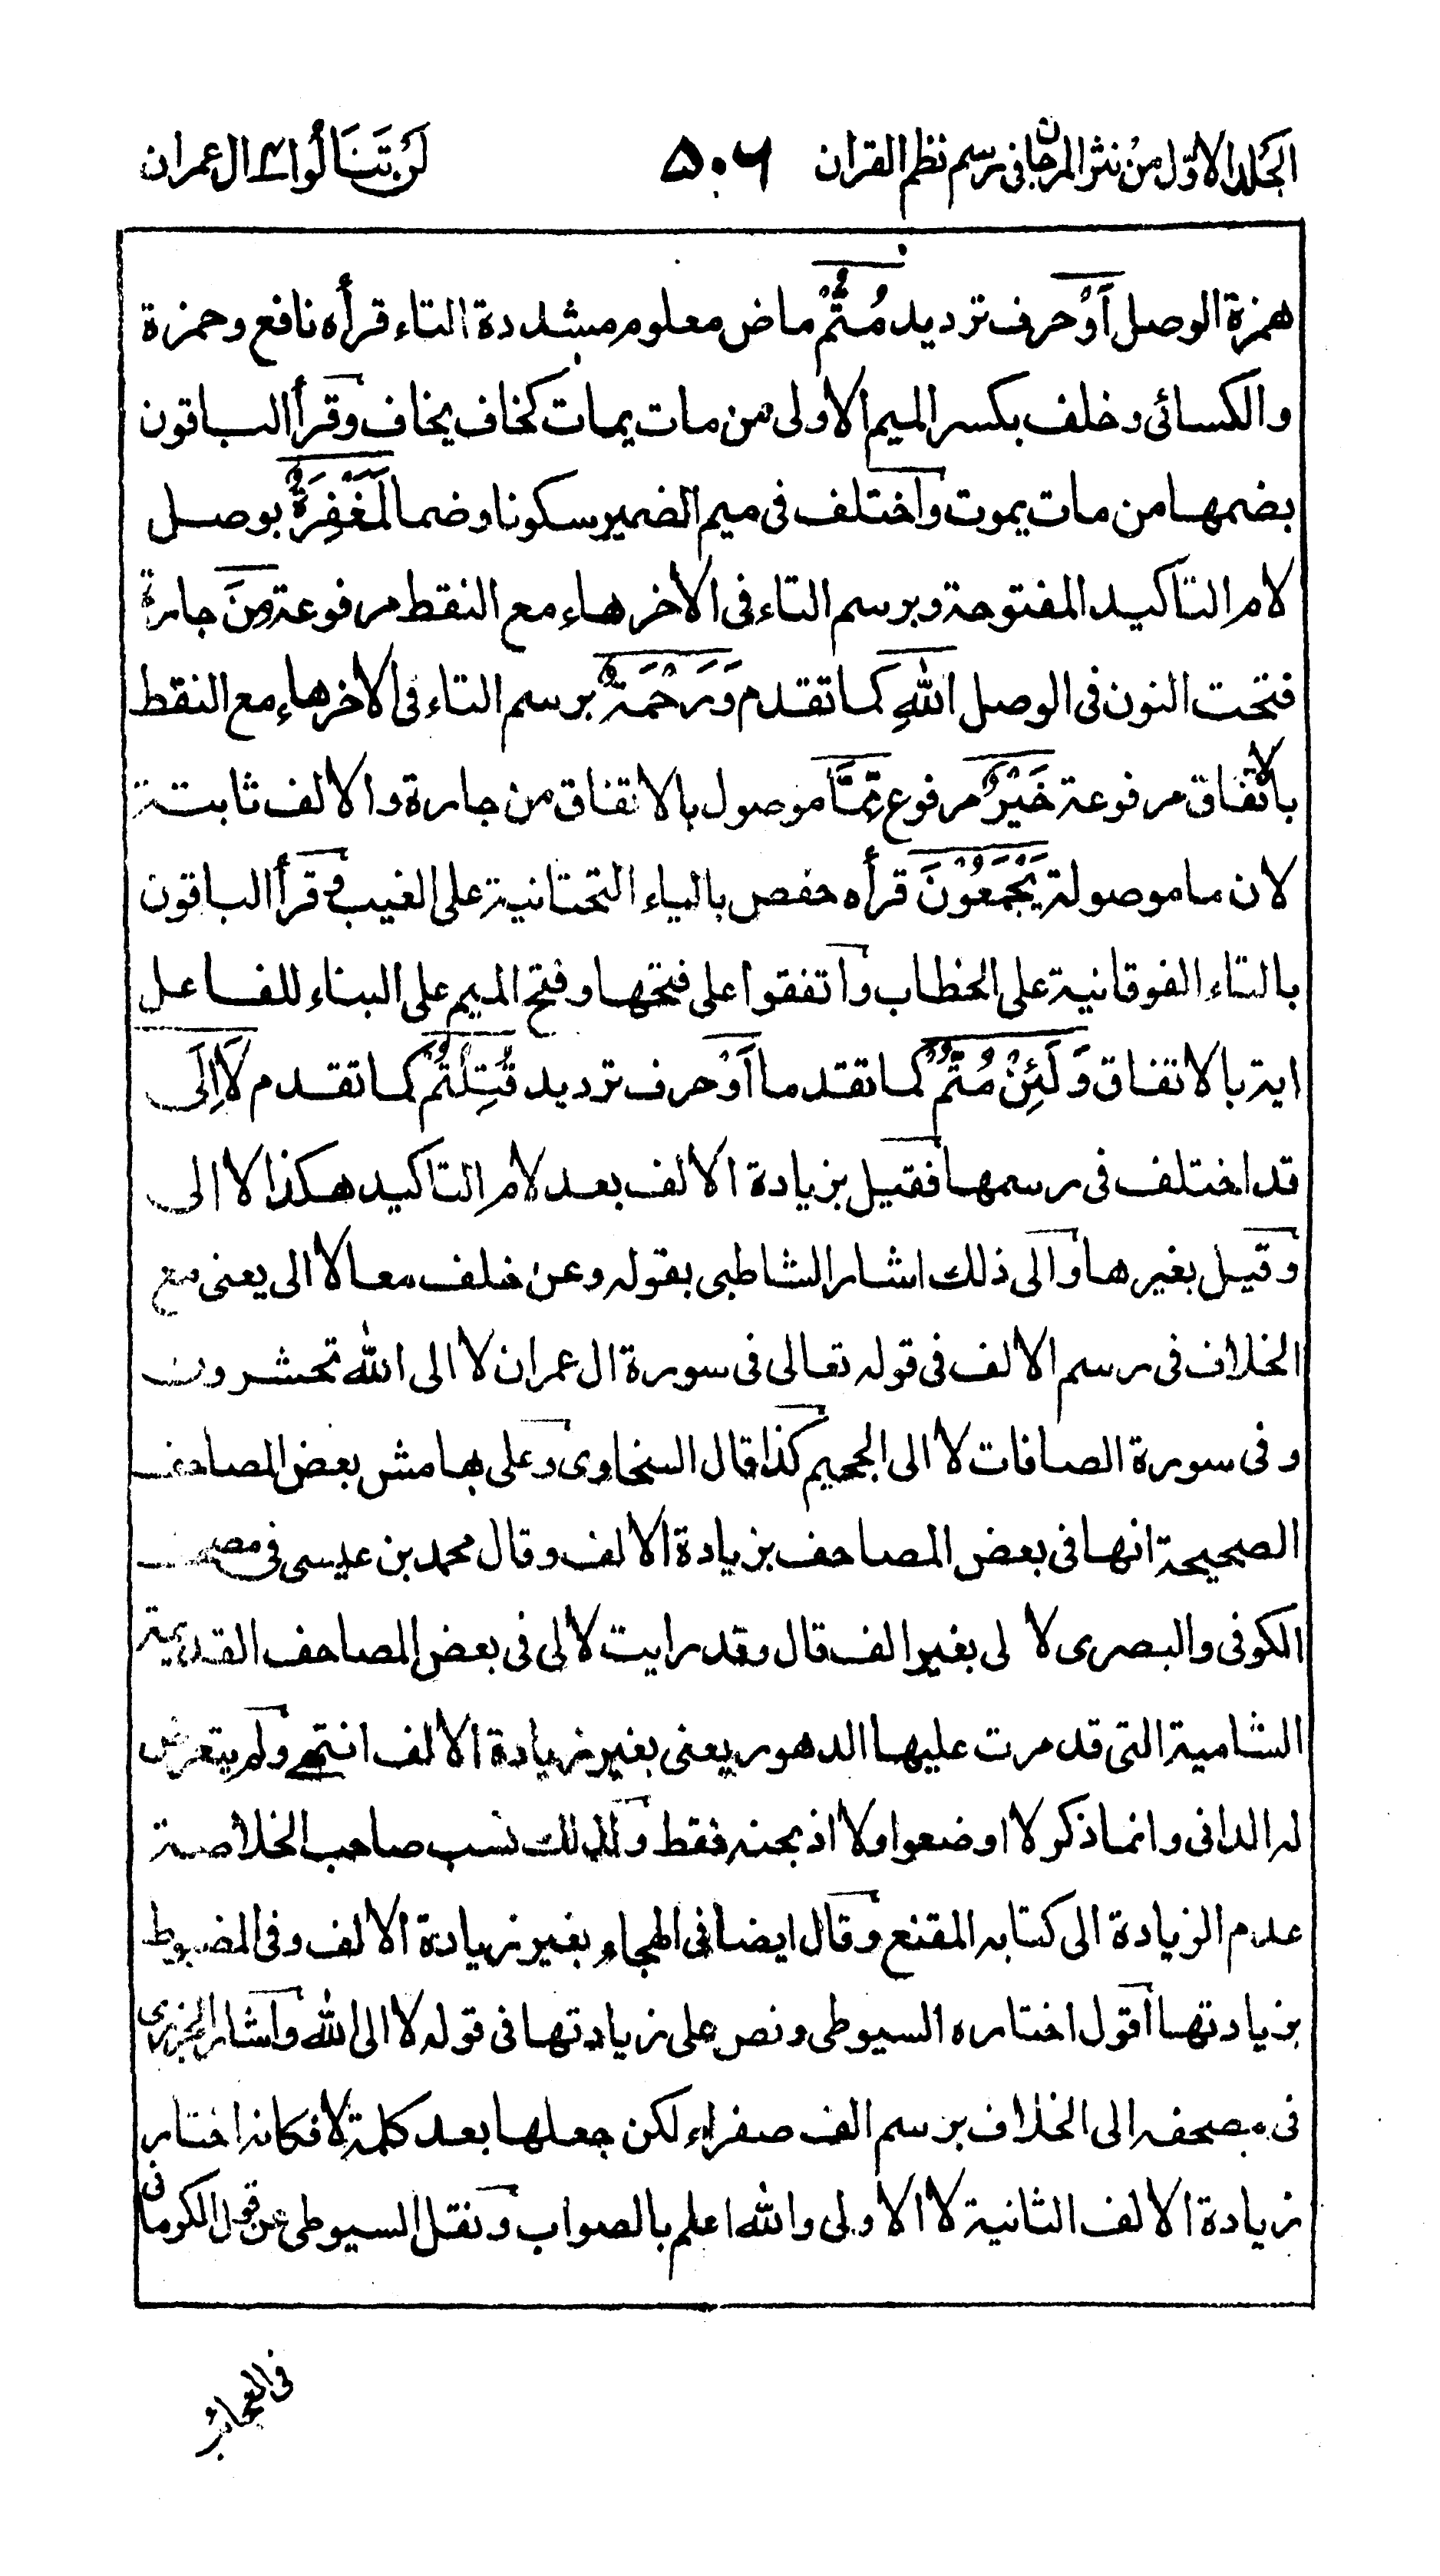 الجلد الاول من نثر المرجان فى رسم نظم القران ٥٠٦ لَنْ تَنَالُوا ٤ ال عمران
همزة الوصل اَوْ حرف ترديد مُتُّمْ ماض معلوم مشددة التاء قرأه نافع وحمزة
والكسائى وخلف بكسر الميم الاولى من مات يمات كخاف يخاف وقرأ الباقون
بضمها من مات يموت واختلف فى ميم الضمير سكونا وضما لَمَغْفِرَةٌ بوصل
لام التاكيد المفتوحة وبرسم التاء فى الاخر هاء مع النقط مرفوعة مِنَ جارة
فتحت النون فى الوصل اللهِ كما تقدم وَرَحْمَةٌ برسم التاء فى الاخر هاء مع النقط
بالاتفاق مرفوعة خَيْرٌ مرفوع مِّمَّا موصول بالاتفاق من جارة والالف ثابتة
لان ما موصولة يَجْمَعُوْنَ قرأه حفص بالياء التحتانية على الغيب وقرأ الباقون
بالتاء الفوقانية على الخطاب واتفقوا على فتحها وفتح الميم على البناء للفاعل
اية بالاتفاق وَلَئِنْ مُتُّمْ كما تقدما اَوْ حرف ترديد قُتِلْتُمْ كما تقدم لَاِالَى
قد اختلف فى رسمها فقيل بزيادة الالف بعد لام التاكيد هكذا لا الى
وقيل بغيرها والى ذلك اشار الشاطبى بقوله وعن خلف معا لا الى يعنى مع
الخلاف فى رسم الالف فى قوله تعالى فى سورة ال عمران لا الى الله تحشرون
وفى سورة الصافات لا الى الجحيم كذا قال السخاوى وعلى هامش بعض المصاحف
الصحيحة انها فى بعض المصاحف بزيادة الالف وقال محمد بن عيسى فى مصحف
الكوفى والبصرى لا لى بغير الف قال وقد رايت لالى فى بعض المصاحف القديمة
الشامية التى قد مرت عليها الدهور يعنى بغير زيادة الالف انتهى ولم يتعرض
له الدانى وانما ذكر لا اوضعوا ولا اذبحنه فقط ولذلك نسب صاحب الخلاصة
عدم الزيادة الى كتابه المقنع وقال ايضا فى الهجاء بغير زيادة الالف وفى المضبوط
بزيادتها اقول اختاره السيوطى ونص على زيادتها فى قوله لا الى الله واشار الجزرى
فى مصحفه الى الخلاف برسم الف صفراء لكن جعلها بعد كلمة لا فكانه اختار
زيادة الالف الثانية لا الاولى والله اعلم بالصواب ونقل السيوطى عن قول الكرمانى
فى العجائب